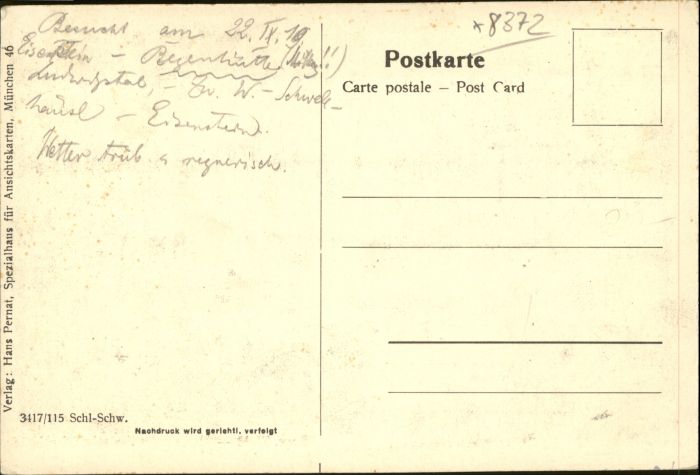 Besucht am 22. IX. 19
Eisenstein – Regenhütte
Ludwigsthal, – Zw. W. – Schwell-
häusl – Eisenstein.
Wetter trüb u regnerisch.
*8372
Postkarte
Carte postale – Post Card
Verlag: Hans Pernat, Spezialhaus für Ansichtskarten, München 46
3417/115 Schl-Schw.
Nachdruck wird gerichtl. verfolgt